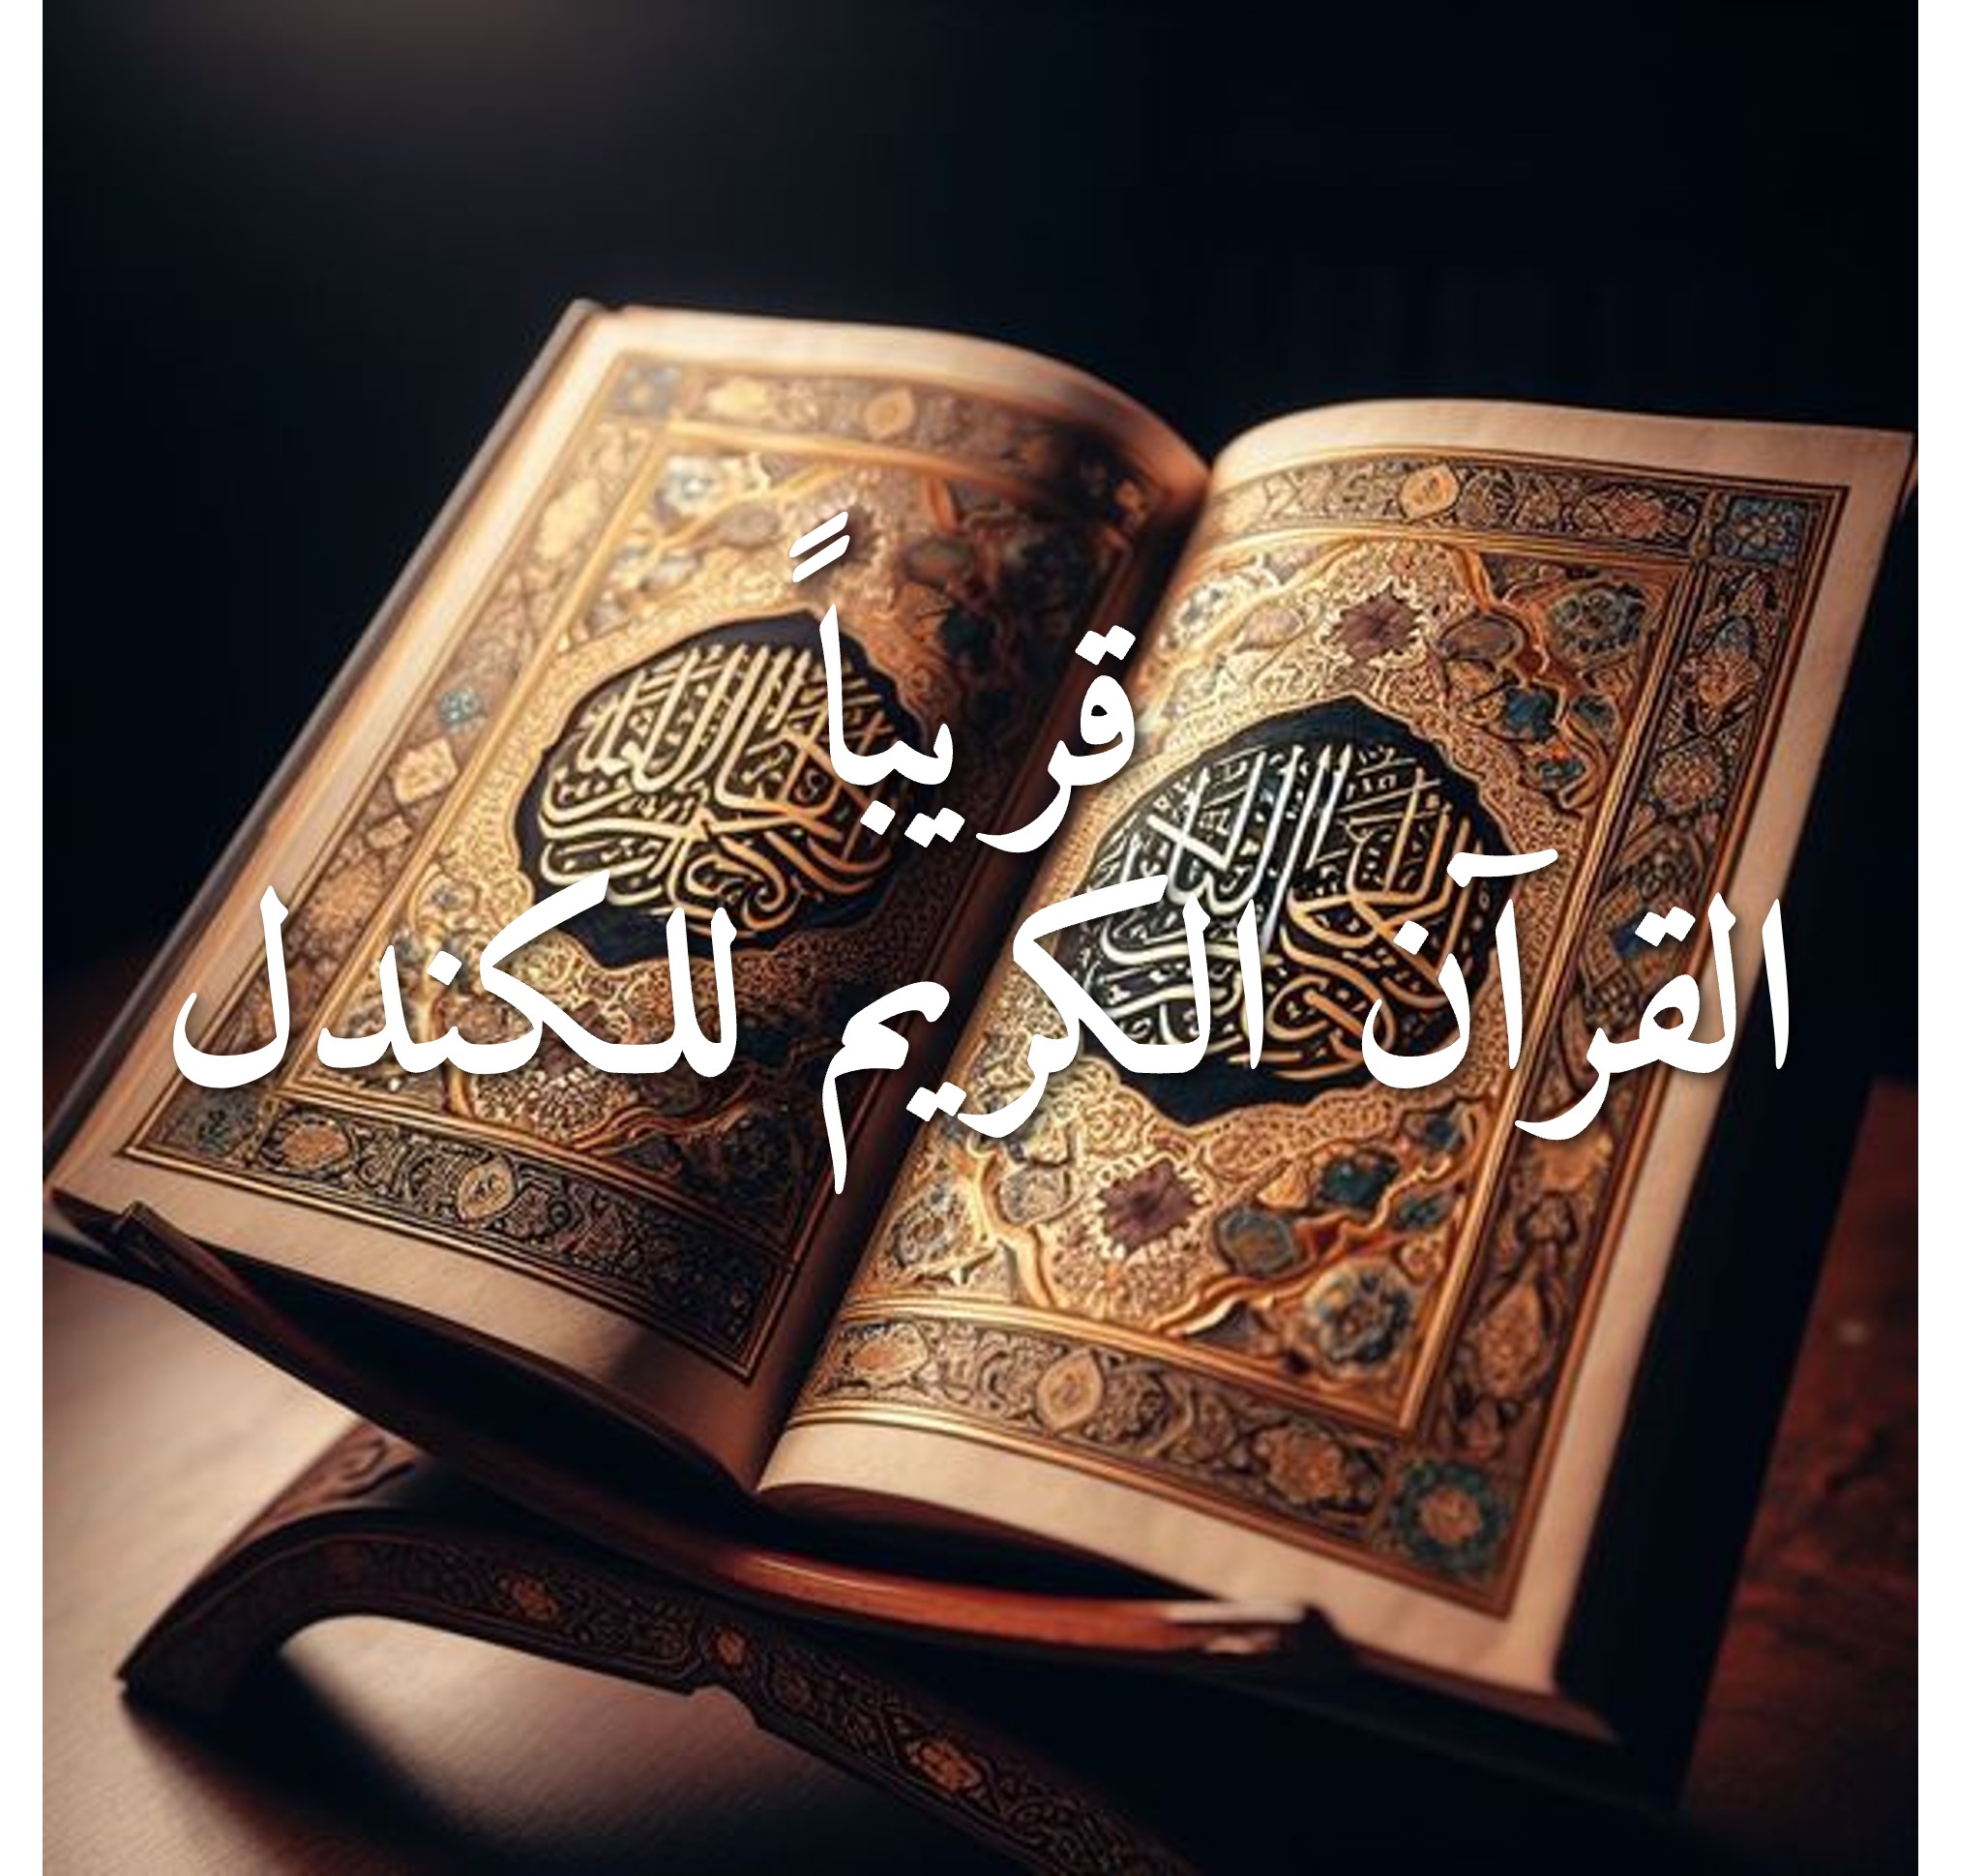 قريباً
القرآن الكريم للكندل